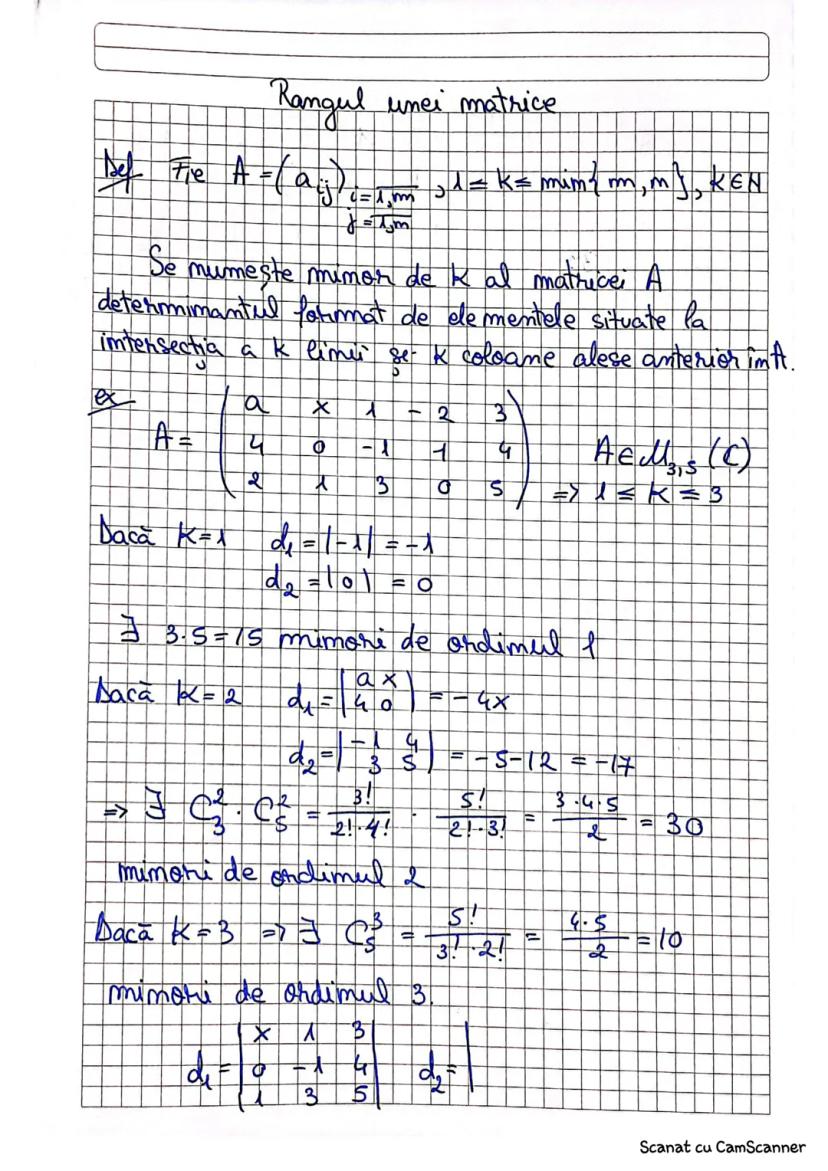 Rangul unei matrice
Def Fie A = (a_ij) i=1,m j=1,n , 1 ≤ k ≤ min{m, n}, k ∈ N
Se numește minor de k al matricei A
determinantul format de elementele situate la
intersecția a k linii și k coloane alese anterior în A.
ex
A = ( a x 1 -2 3
4 0 -1 1 4
2 1 3 0 5 )
A ∈ M_3,5 (C)
=> 1 ≤ k ≤ 3
Dacă k=1 d₁ = |-1| = -1
d₂ = |0| = 0
∃ 3·5=15 minori de ordinul 1
Dacă k=2 d₁ = | a x
4 0 | = -4x
d₂ = | -1 4
3 5 | = -5-12 = -17
=> ∃ C₃² · C₅² = 3!/(2!·4!) · 5!/(2!·3!) = (3·4·5)/2 = 30
minori de ordinul 2
Dacă k=3 => ∃ C₅³ = 5!/(3!·2!) = (4·5)/2 = 10
minori de ordinul 3.
d₁ = | x 1 3
0 -1 4
1 3 5 | d₂ = |
Scanat cu CamScanner